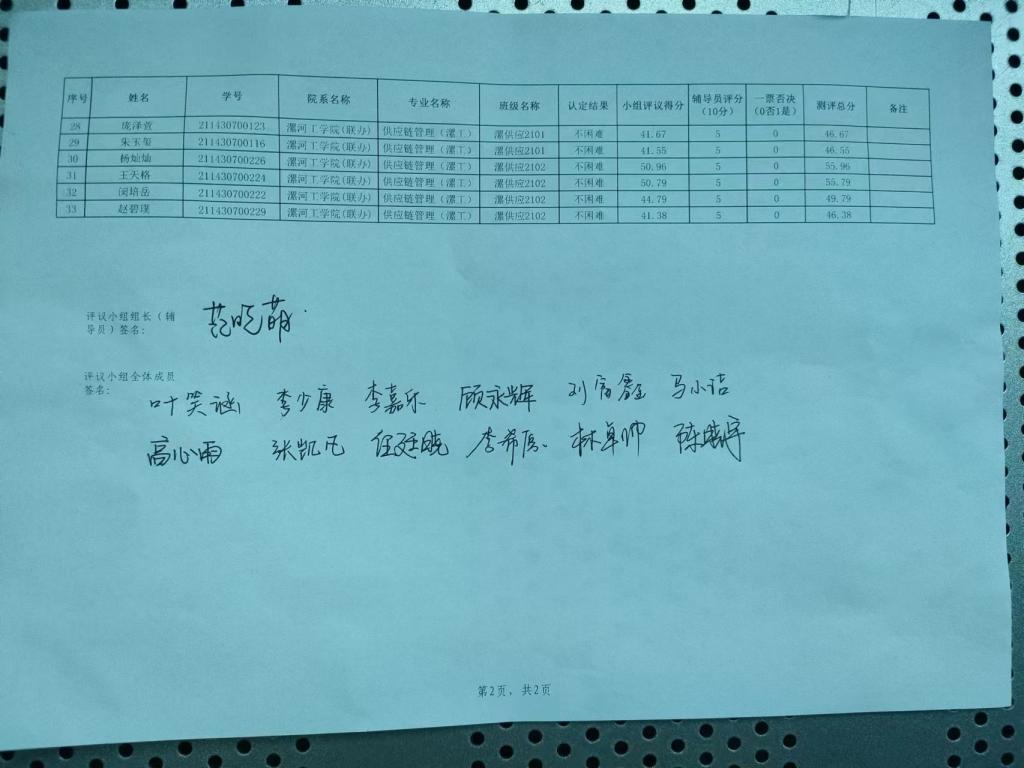 序号 姓名 学号 院系名称 专业名称 班级名称 认定结果 小组评议得分 辅导员评分（10分） 一票否决（0否1是） 测评总分 备注
28 庞泽萱 211430700123 漯河工学院(联办) 供应链管理（漯工） 漯供应2101 不困难 41.67 5 0 46.67
29 朱玉玺 211430700116 漯河工学院(联办) 供应链管理（漯工） 漯供应2101 不困难 41.55 5 0 46.55
30 杨灿灿 211430700226 漯河工学院(联办) 供应链管理（漯工） 漯供应2102 不困难 50.96 5 0 55.96
31 王天格 211430700224 漯河工学院(联办) 供应链管理（漯工） 漯供应2102 不困难 50.79 5 0 55.79
32 闵培岳 211430700222 漯河工学院(联办) 供应链管理（漯工） 漯供应2102 不困难 44.79 5 0 49.79
33 赵碧璞 211430700229 漯河工学院(联办) 供应链管理（漯工） 漯供应2102 不困难 41.38 5 0 46.38
评议小组组长（辅
导员）签名： 范晓萌
评议小组全体成员
签名：
叶笑涵 李少康 李嘉乐 顾永辉 刘富鑫 马小洁
高心雨 张凯凡 任廷晓 李希原 林卓帅
第2页, 共2页